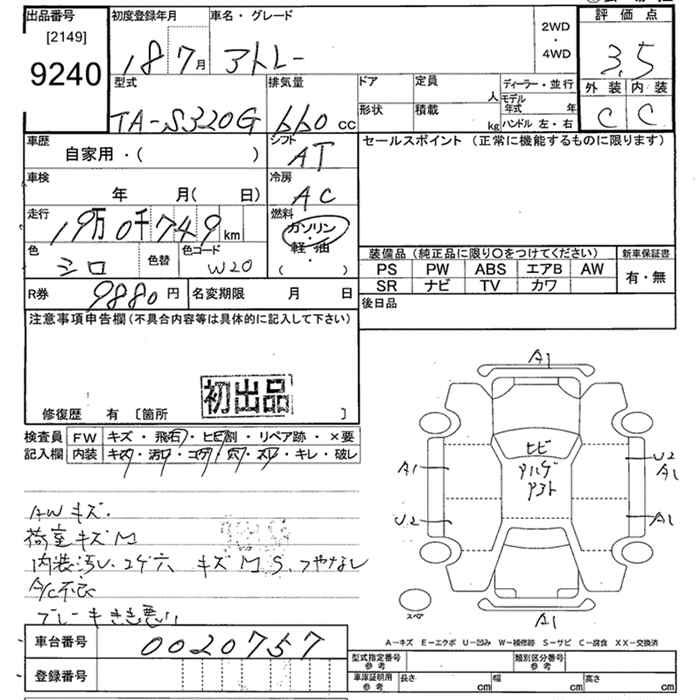 出品番号
[2149]
9240
初度登録年月
18 7月
車名・グレード
アトレー
2WD
・
4WD
評価点
3.5
外装 内装
C C
型式
TA-S320G
排気量
660 cc
ドア
定員
人
ディーラー・並行
モデル年式 年
形状
積載
kg
ハンドル 左・右
車歴
自家用・( )
シフト
AT
セールスポイント (正常に機能するものに限ります)
車検
年 月( 日)
冷房
AC
走行
19万0千749km
燃料
ガソリン
・
軽・油
( )
色
シロ
色替
色コード
W20
装備品(純正品に限り○をつけてください)
新車保証書
PS PW ABS エアB AW
有・無
SR ナビ TV カワ
R券
9880円
名変期限 月 日
後日品
注意事項申告欄(不具合内容等は具体的に記入して下さい)
初出品
修復歴 有 [箇所 ]
検査員
記入欄
FW キズ・飛石・ヒビ割・リペア跡・×要
内装 キズ・汚レ・コゲ・穴・スレ・キレ・破レ
A1
ヒビ
A1
U2
A1
U2
A1
A1
スペア
AWキズ.
荷室キズM
A/C不良
ブレーキきき悪い
A-キズ E-エクボ U-凹み W-補修跡 S-サビ C-腐食 XX-交換済
車台番号
0020757
登録番号
型式指定番号
参考
類別区分番号
参考
車庫証明用
参考
長さ cm
幅 cm
高さ cm